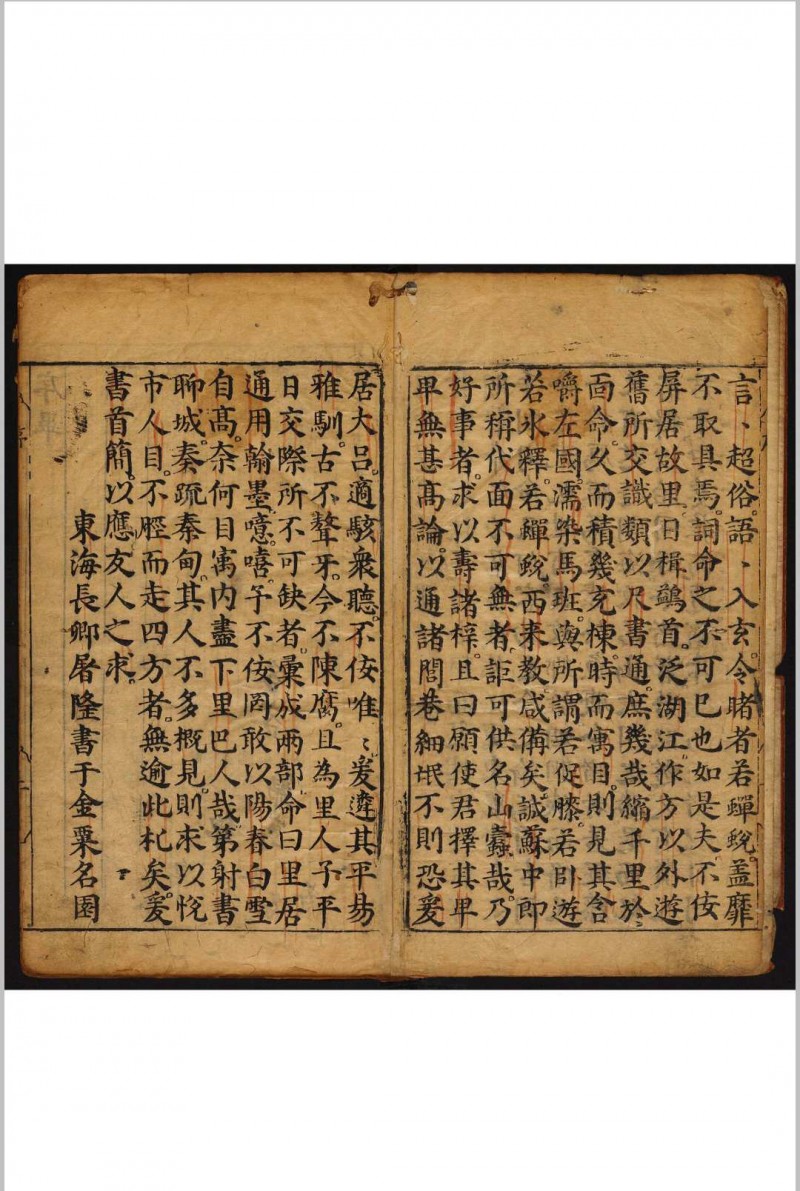 言、超俗。語、入玄。令睹者若蟬蛻。盖靡
不取具焉。詞命之不可已也如是夫。不佞
屏居故里。日楫鷁首。泛湖江。作方以外遊。
舊所交識。類以尺書通。庶幾哉。縮千里於
面命。久而積幾充棟。時而寓目。則見其含
嚼左國。濡染馬班。與所謂若促膝。若卧遊。
若氷釋。若蟬蛻。西来教咸備矣。誠蘇中郎
所稱代面不可無者。詎可供名山蠹哉。乃
好事者。求以壽諸梓。且曰願使君擇其卑
卑無甚高論。以通諸閭巷細氓。不則恐爰
居大吕。適駭衆聽。不佞唯、爰遴其平易
雅馴。古不聱牙。今不陳腐。且為里人子平
日交際所不可缺者。彙成兩部。命曰里居
通用翰墨。噫嘻。予不佞罔敢以陽春白雪
自高。奈何目寓内盡下里巴人哉。第射書
聊城。秦疏秦甸。其人不多概見。則求以悅
市人目。不脛而走四方者。無逾此札矣。爰
書首簡。以應友人之求。
東海長卿屠隆書于金粟名園